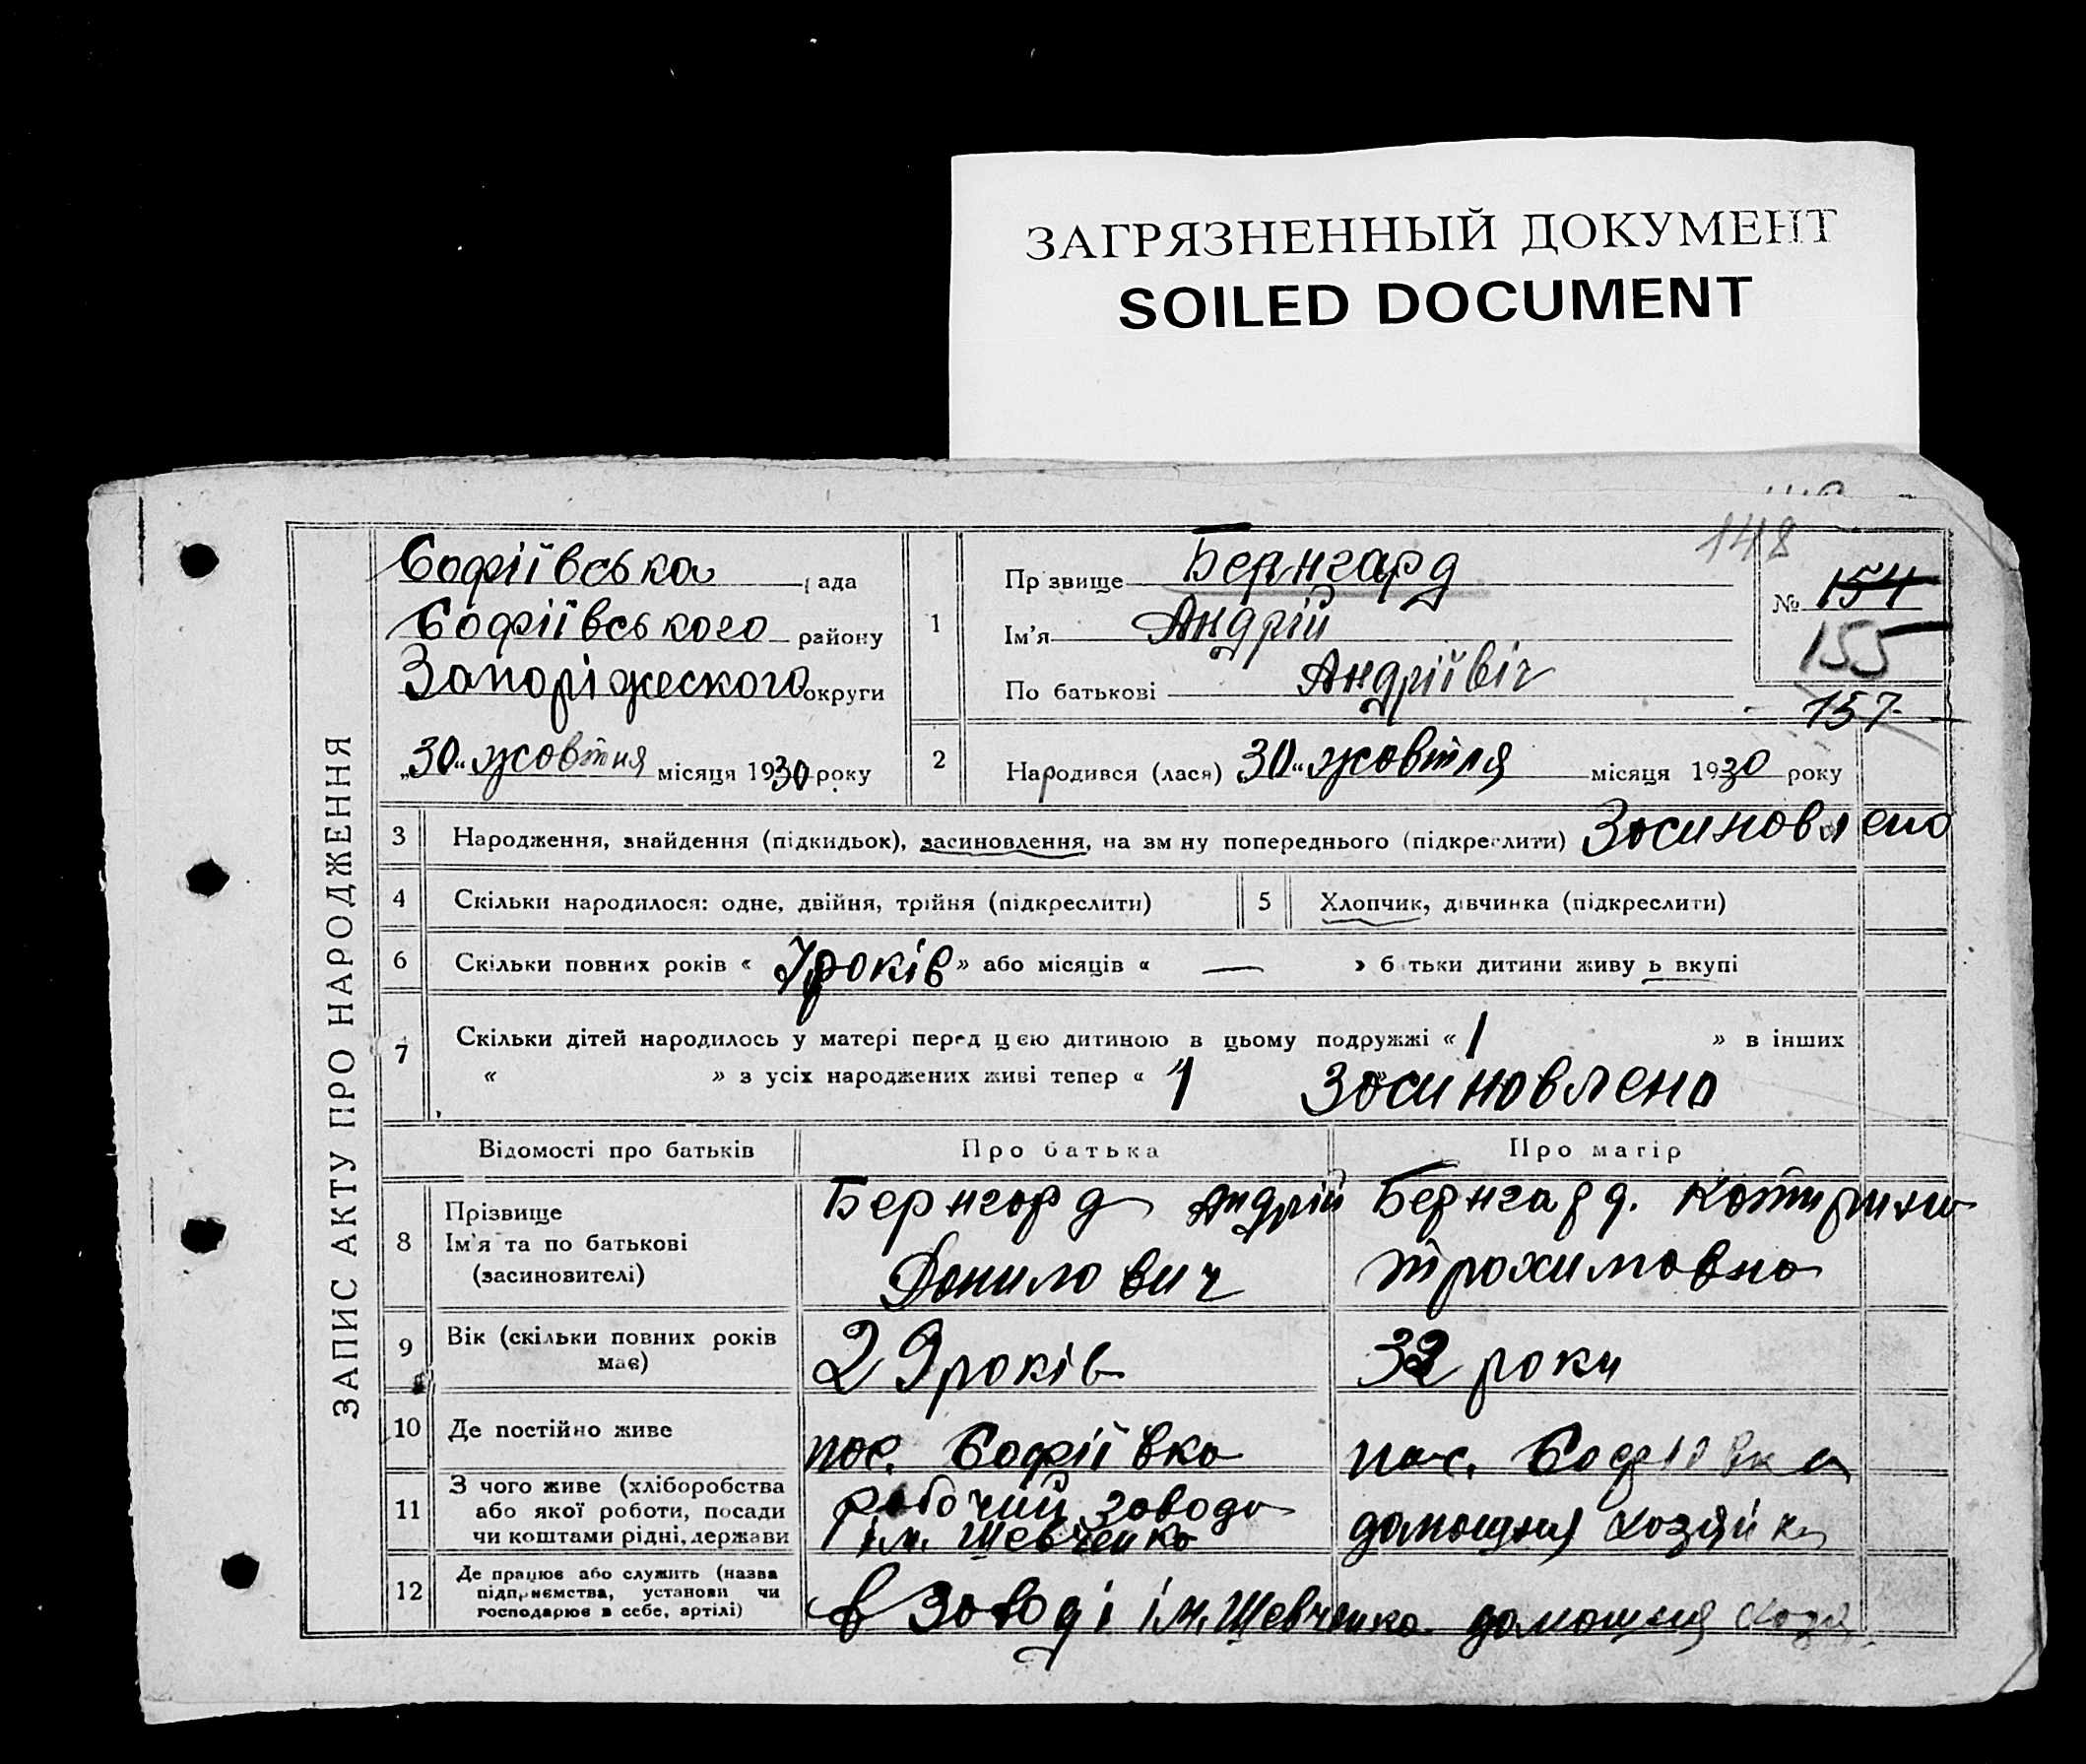 ЗАГРЯЗНЕННЫЙ ДОКУМЕНТ
SOILED DOCUMENT
148
ЗАПИС АКТУ ПРО НАРОДЖЕННЯ
Софіївська рада
Софіївського району
Запоріжеского округи
„30“ жовтня місяця 1930 року
1
Пр звище Бернгард
Ім'я Андрій
По батькові Андріївіч
№ 154
155
157
2 Народився (лася) 30“ жовтня місяця 1930 року
3 Народження, знайдення (підкидьок), засиновлення, на зм ну попереднього (підкреслити) Засиновлено
4 Скільки народилося: одне, двійня, трійня (підкреслити) 5 Хлопчик, дівчинка (підкреслити)
6 Скільки повних років « 7 років » або місяців « — » б тьки дитини живу ь вкупі
7 Скільки дітей народилось у матері перед цією дитиною в цьому подружжі « 1 » в інших
« » з усіх народжених живі тепер « 1 Засиновлено
Відомості про батьків Про батька Про матір
8 Прізвище
Ім'я та по батькові
(засиновителі)
Бернгард Андрій
Данилович
Бернгард. Катирина
трохимовна
9 Вік (скільки повних років
має)
29 років
32 роки
10 Де постійно живе
пос. Софіївка
пос. Софіївка
11 З чого живе (хліборобства
або якої роботи, посади
чи коштами рідні, держави
рабочий завода
ім. Шевченка
домашня хозяйка
12 Де працює або служить (назва
підприємства, установи чи
господарює в себе, артілі)
в заводі ім. Шевченка
домашня хозя